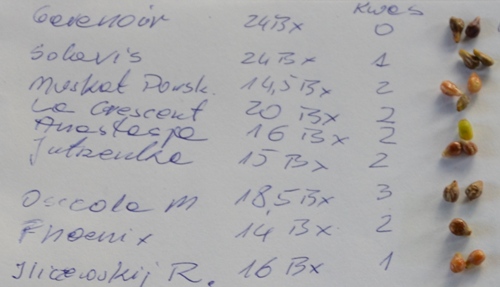 Kwas
Garanoir 24Bx 0
Solaris 24Bx 1
Muskat Donsk. 14,5 Bx 2
La Crescent 20 Bx 2
Anastasja 16 Bx 2
Jutrzenka 15 Bx 2
Osceola M 18,5 Bx 3
Phoenix 14, Bx 2
Iliczewskij R. 16 Bx 1